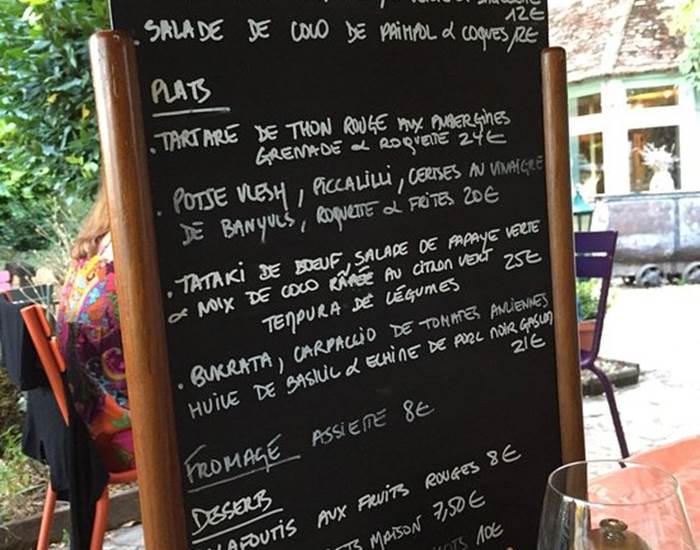 12€
.SALADE DE COCO DE PAIMPOL & COQUES/12€
PLATS
.TARTARE DE THON ROUGE AUX AUBERGINES
GRENADE & ROQUETTE 24€
. POTJE VLESH, PICCALILLI, CERISES AU VINAIGRE
DE BANYULS, ROQUETTE & FRITES 20€
.TATAKI DE BŒUF, SALADE DE PAPAYE VERTE
& NOIX DE COCO RÂPÉE AU CITRON VERT 25€
TEMPURA DE LÉGUMES
. BURRATA, CARPACCIO DE TOMATES ANCIENNES
HUILE DE BASILIC & ECHINE DE PORC NOIR GASCON
21€
FROMAGE ASSIETTE 8€
DESSERTS
LAFOUTIS AUX FRUITS ROUGES 8€
MAISON 7,50€
10€